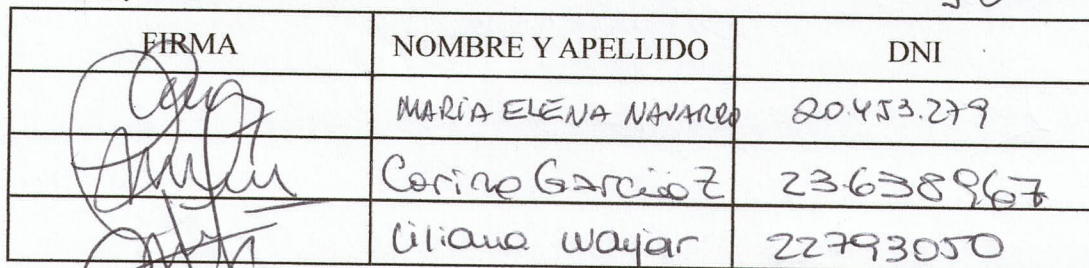 FIRMA NOMBRE Y APELLIDO DNI
MARIA ELENA NAVARRO 20.453.279
Corina Garcia Z 23.638.967
Liliana Wayar 22793050